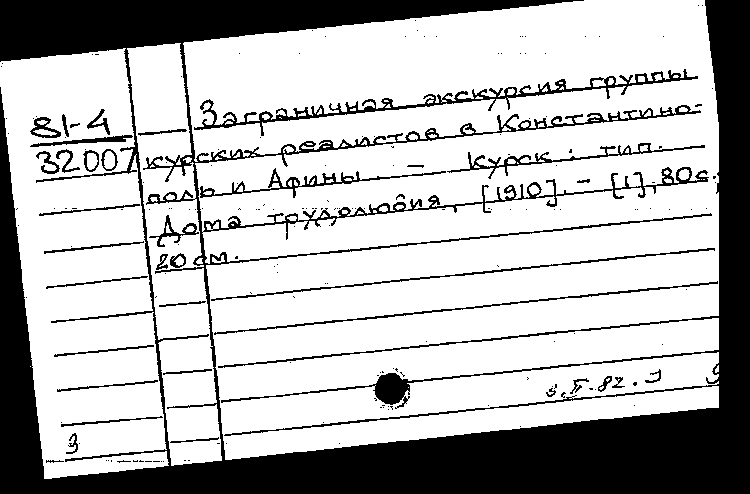 81-4
32007
Заграничная экскурсия группы
курских реалистов в Константино-
поль и Афины. - Курск : тип.
Дома трудолюбия, [1910]. - [1], 80 с.;
20 см.
3.II.82.
З